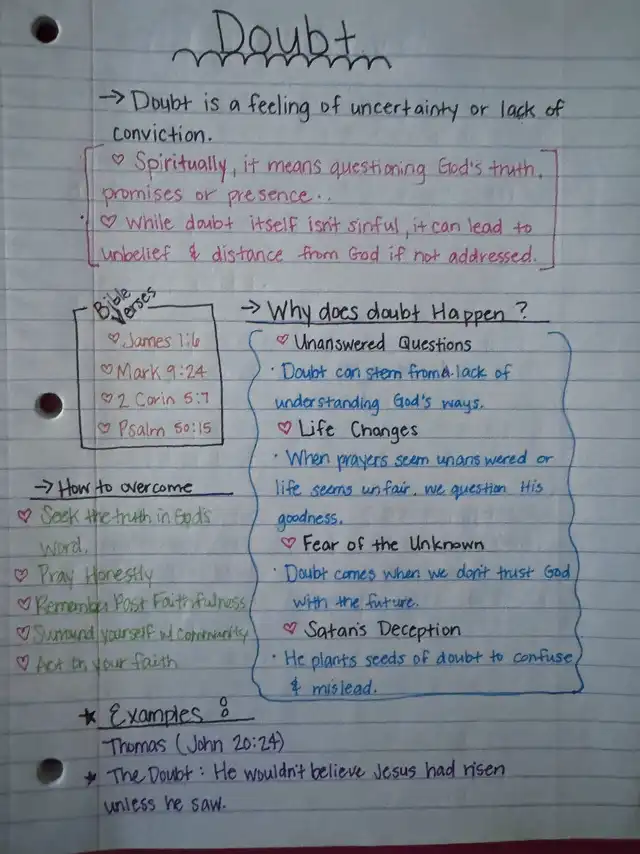 Doubt
→ Doubt is a feeling of uncertainty or lack of
conviction.
♡ Spiritually, it means questioning God's truth,
promises or presence..
♡ While doubt itself isn't sinful, it can lead to
unbelief & distance from God if not addressed.
Bible
Verses
♡ James 1:6
♡ Mark 9:24
♡ 2 Corin 5:7
♡ Psalm 50:15
→ How to overcome
♡ Seek the truth in God's
word.
♡ Pray Honestly
♡ Remember Past Faithfulness
♡ Surround yourself w/ community
♡ Act in your faith
→ Why does doubt Happen ?
♡ Unanswered Questions
· Doubt can stem from a lack of
understanding God's ways.
♡ Life Changes
· When prayers seem unanswered or
life seems unfair, we question His
goodness.
♡ Fear of the Unknown
· Doubt comes when we don't trust God
with the future.
♡ Satan's Deception
· He plants seeds of doubt to confuse
& mislead.
★ Examples :
Thomas (John 20:24)
★ The Doubt : He wouldn't believe Jesus had risen
unless he saw.